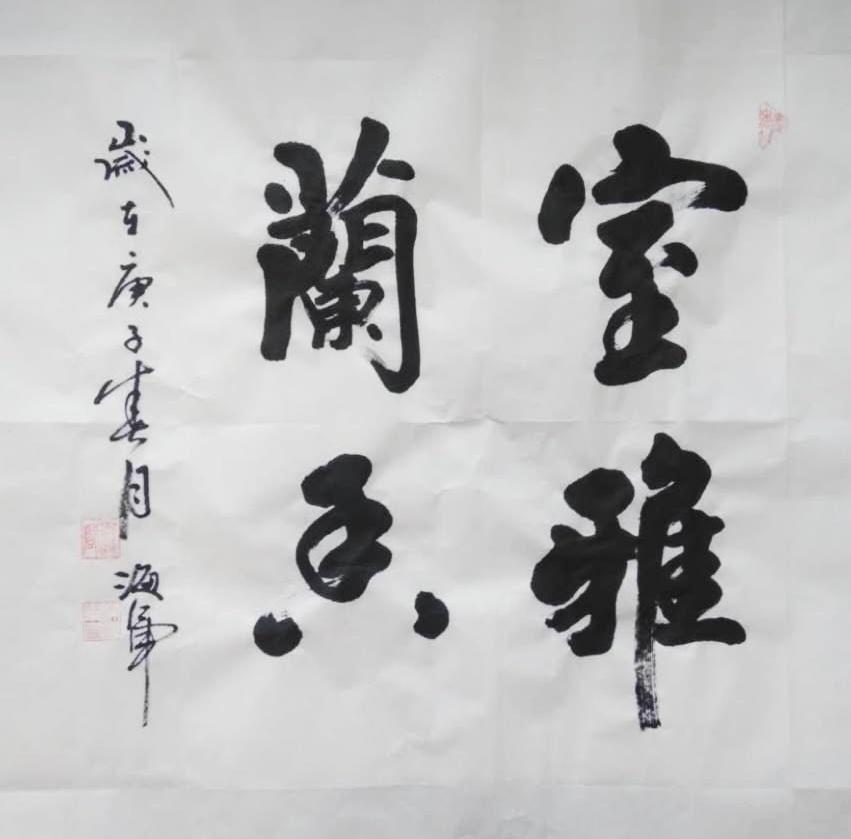 室雅
蘭香
歲在庚子春月 海軍